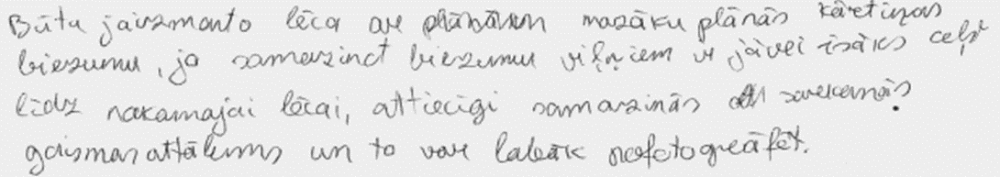 Būtu jāizmanto lēca ar mazāku plānās kārtiņas
biezumu, jo samazinot biezumu viļņiem ir jāveic īsāks ceļš
līdz nākamajai lēcai, attiecīgi samazinās
gaismas attālums un to var labāk nofotografēt.